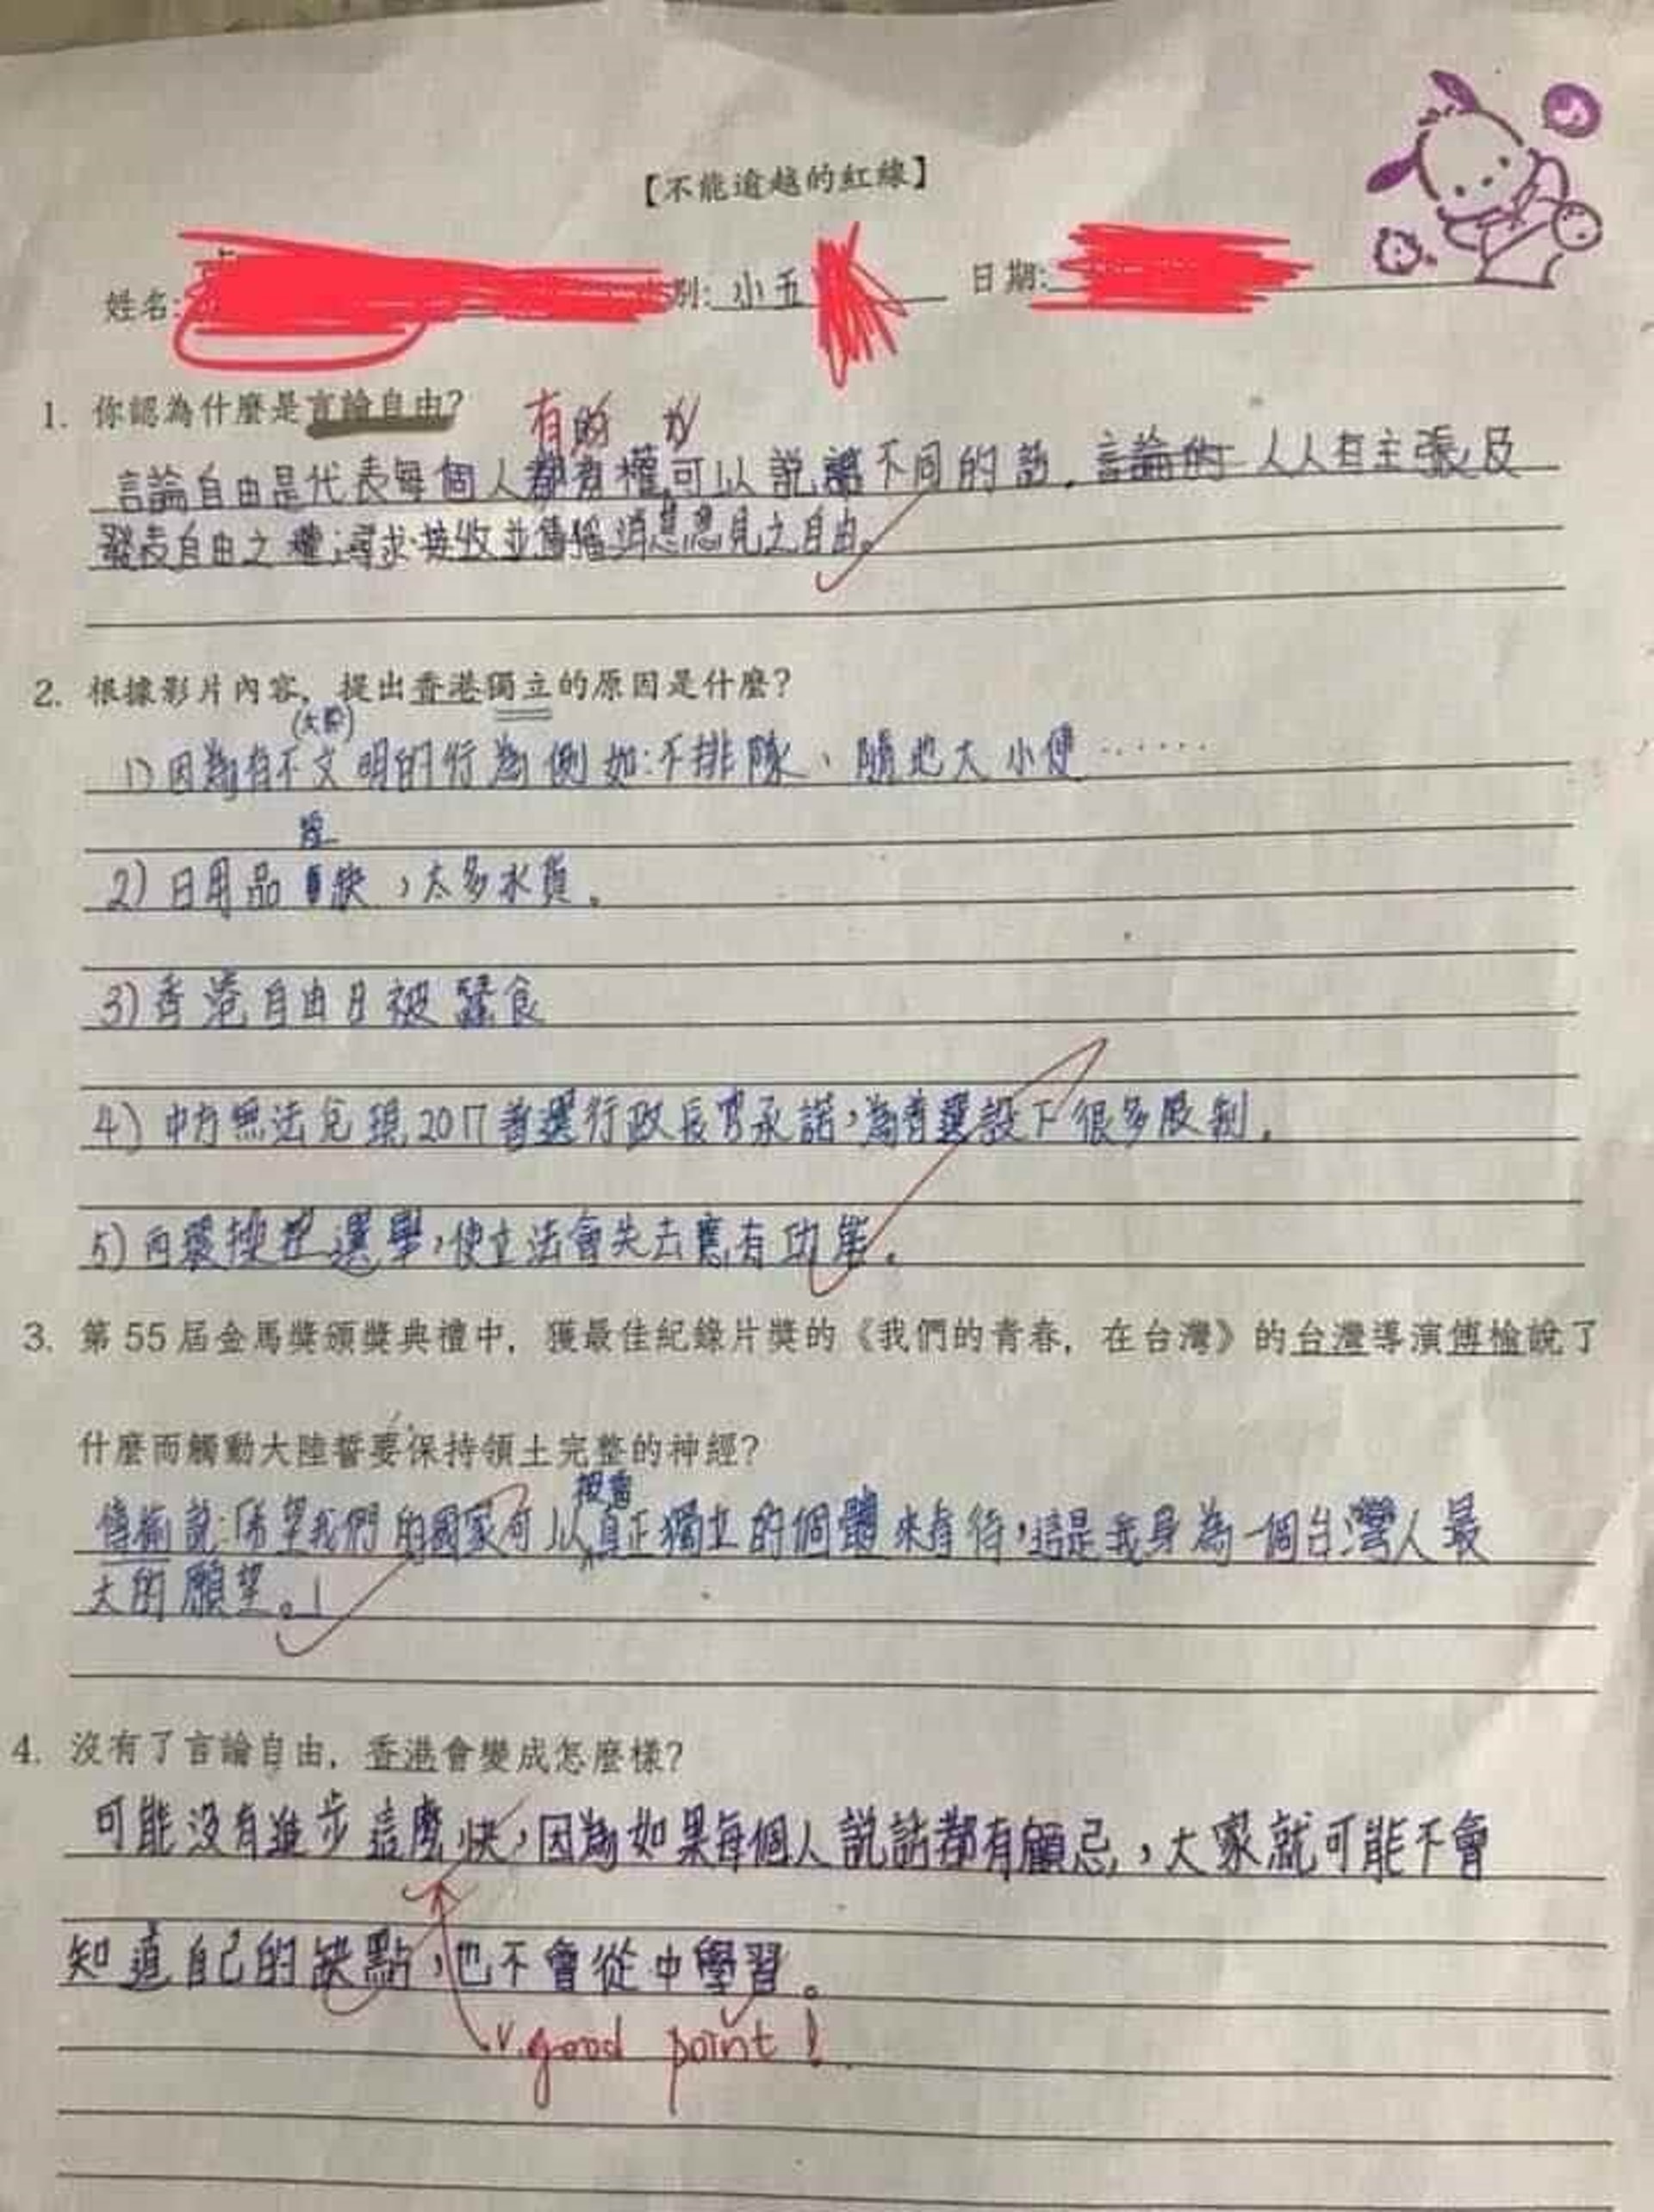 【不能逾越的紅線】
姓名: 別: 小五 日期:
1. 你認為什麼是言論自由?
有的 力
言論自由是代表每個人都有權可以說不同的話。言論的 人人有主張及
發表自由之權;尋求接收並傳播消息意見之自由。
2. 根據影片內容,提出香港獨立的原因是什麼?
(大陸)
1) 因為有不文明的行為例如:不排隊、隨地大小便……
短
2) 日用品 缺,太多水貨。
3) 香港自由日被蠶食
4) 中方無法兌現2017普選行政長官承諾,為普選設下很多限制。
5) 內選舉,使立法會失去應有功能。
3. 第55屆金馬獎頒獎典禮中,獲最佳紀錄片獎的《我們的青春,在台灣》的台灣導演傅榆說了
什麼而觸動大陸誓要保持領土完整的神經?
被當
傅榆說:「希望我們的國家可以真正獨立的個體來看待,這是我身為一個台灣人最
大的願望。」
4. 沒有了言論自由,香港會變成怎麼樣?
可能沒有進步這麼快,因為如果每個人說話都有顧忌,大家就可能不會
知道自己的缺點,也不會從中學習。
v. good point!